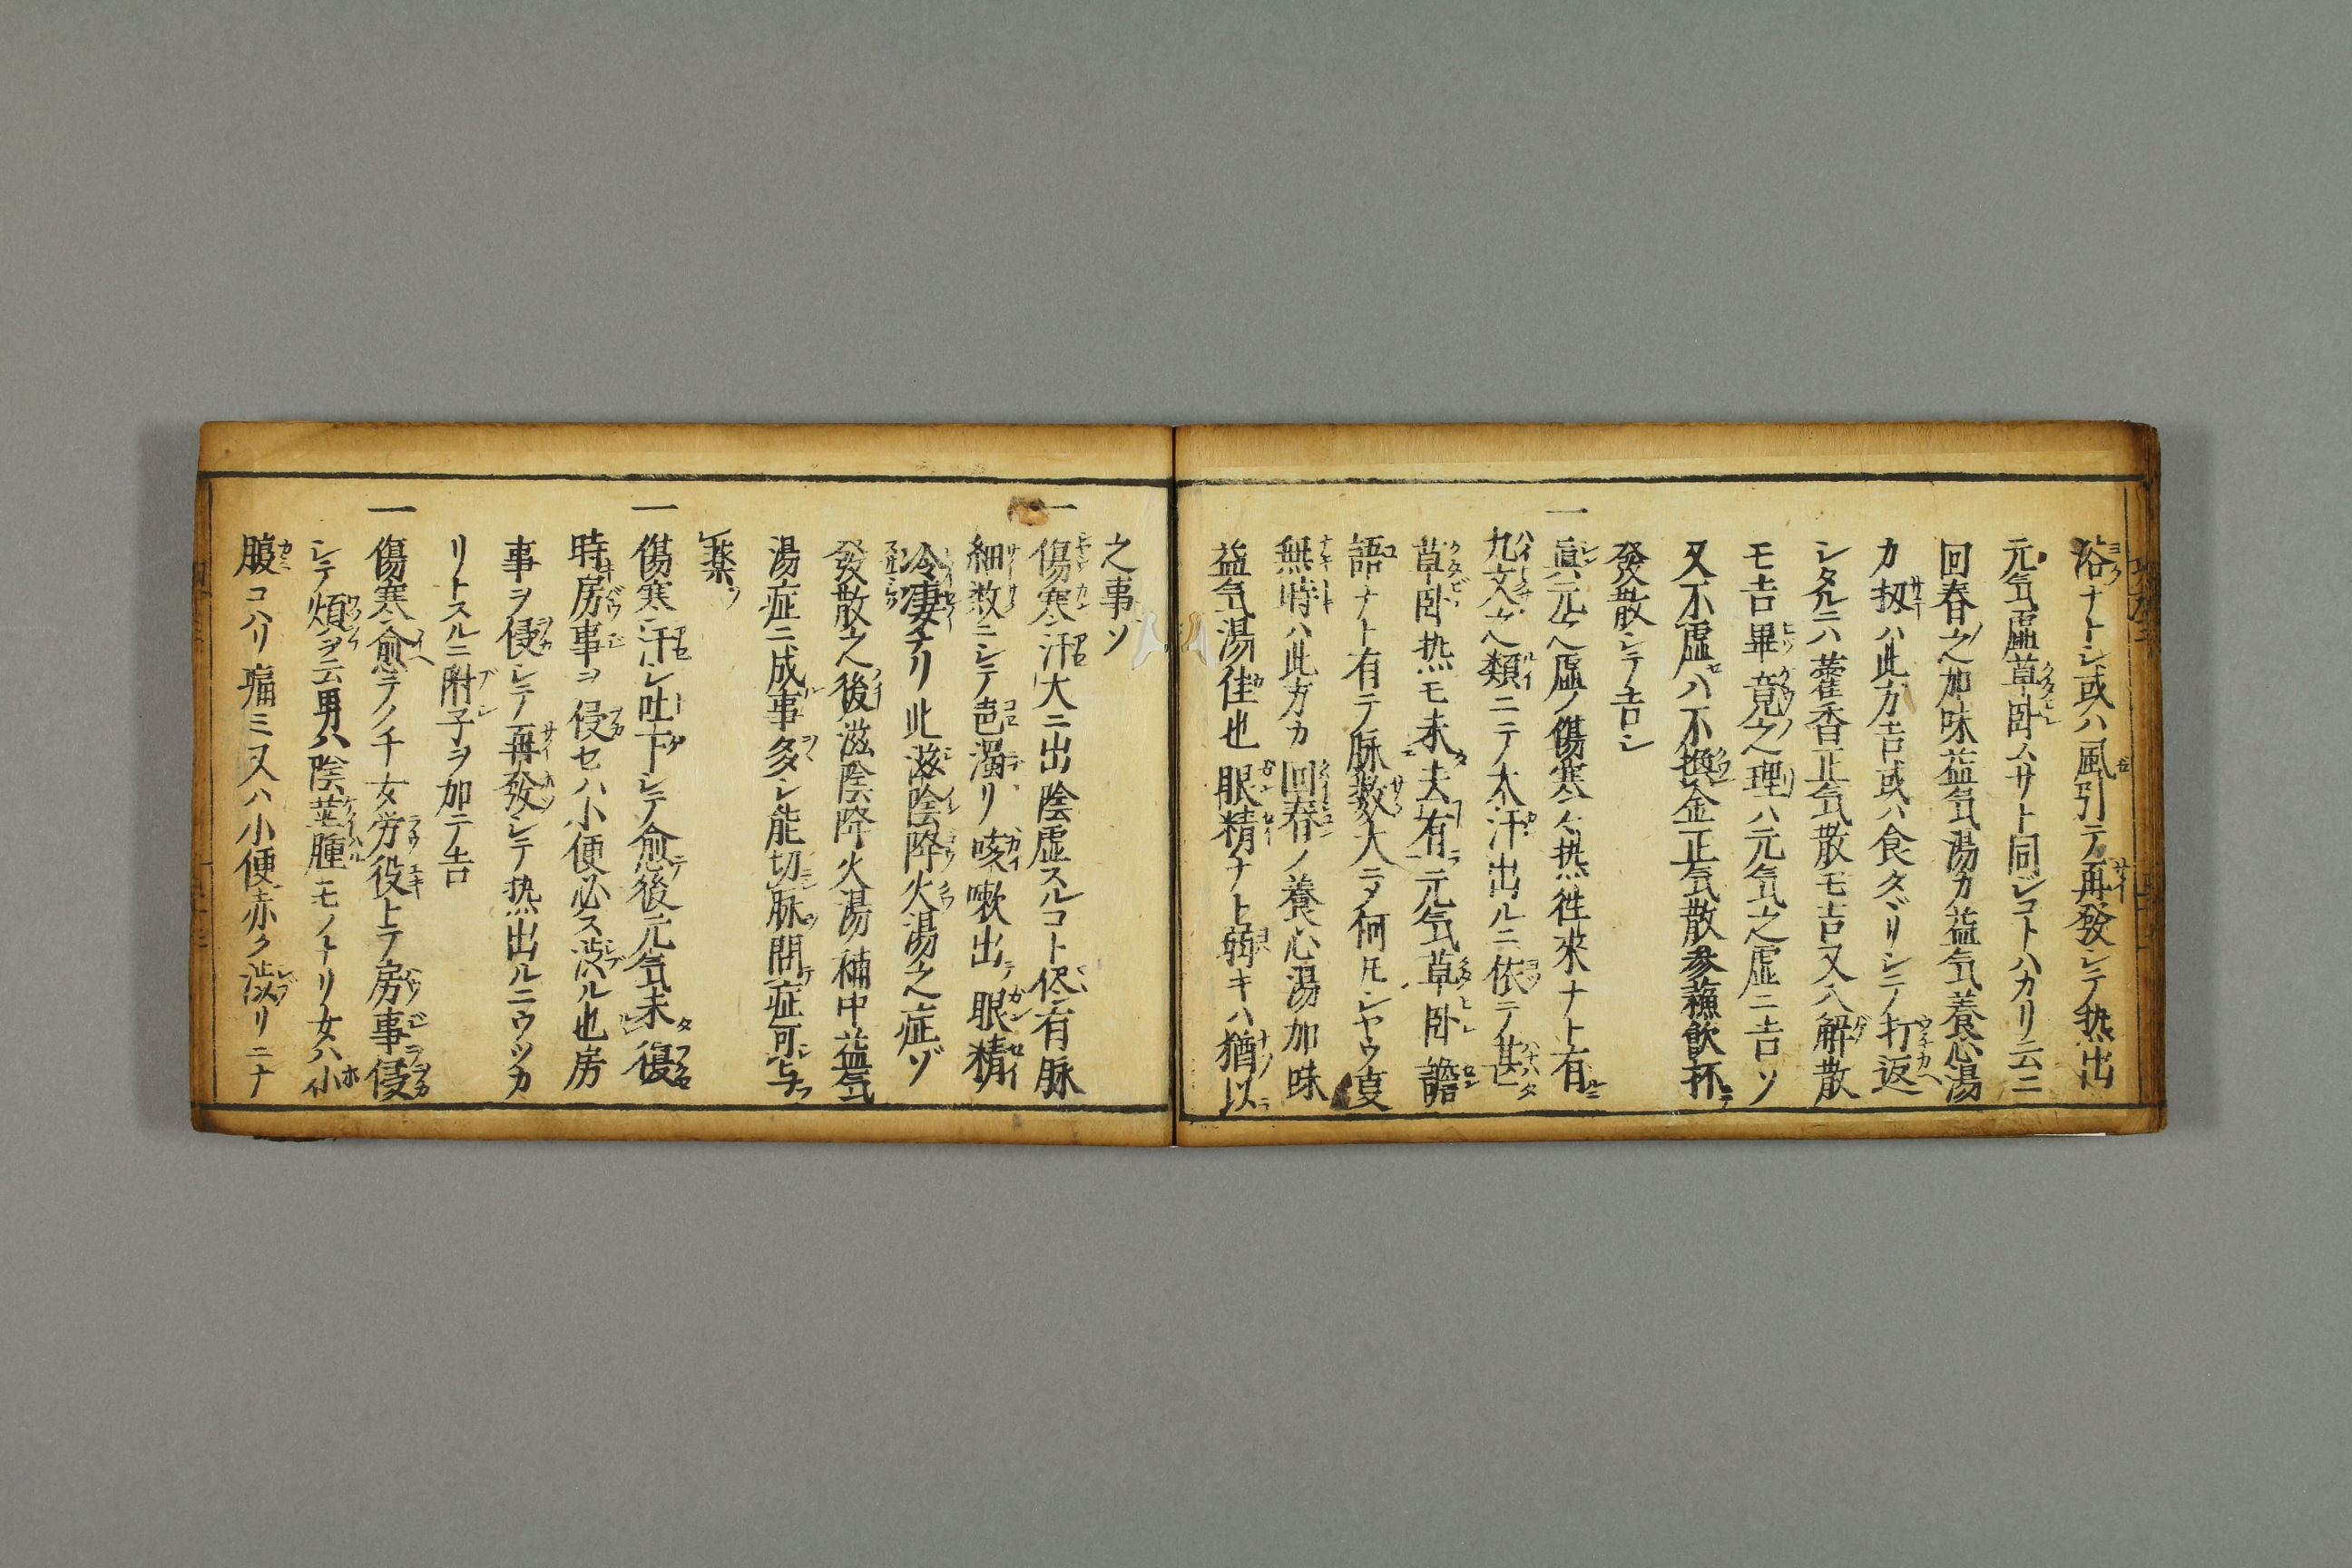 浴ナトシ或ハ風引テ再發シテ热出
元気虛草卧ムサト同シコトハカリ云ニ
回春之加味益気湯カ益気養心湯
カ扨ハ此方吉或ハ食タヾリシテ打返
シタルニハ藿香正気散モ吉又ハ解散
モ吉畢竟之理ハ元気之虛ニ吉ソ
又不虛ハ不換金正気散参蘓飲抔
發散シテ吉シ
一眞元虛ノ傷寒ハ热徃來ナト有
類ニテ太汗出ルニ依テ甚
草卧热モ未去有元気草卧譫
語ナト有テ脉数大ニメ何モシヤウ
無時ハ此方カ回春ノ養心湯加味
益気湯佳也眼精ナト弱キハ猶以
之事ソ
一傷寒汗大ニ出陰虚スルコト有脉
細数ニシテ濁リ咳嗽出眼精
冷凄チリ此滋陰降火湯之症ゾ
發散之後滋陰降火湯補中益気
湯症ニ成事多シ能切脉問症可与
薬ヲ
一傷寒汗シ吐下シテ愈後元気未復
時房事ヲ侵セハ小便必ス渋ル也房
事ヲ侵シテ再發シテ热出ルニウツカ
リトスルニ附子ヲ加テ吉
一傷寒愈テノチ女労役トテ房事侵
シテ煩ヲ云男ハ陰茎腫モノナリ女ハ小
腹コハリ痛ミ又ハ小便赤ク渋リニナ